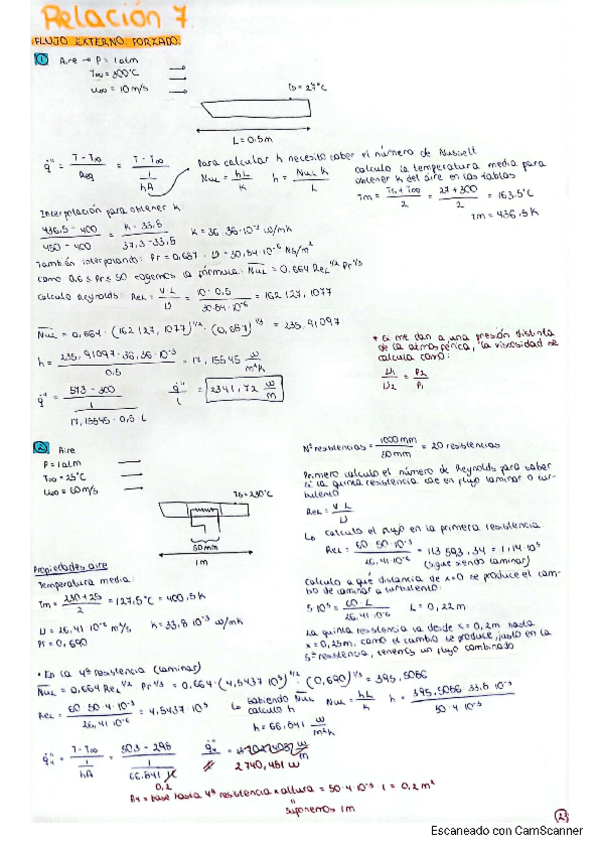 Relación 7
FLUJO EXTERNO FORZADO
1 Aire → P = 1 atm
T∞ = 300°C
u∞ = 10 m/s
Ts = 27°C
L = 0.5m
q̇'' = (T - T∞)/Req = (T - T∞)/(1/hA)
Para calcular h necesito saber el número de Nusselt
NuL = hL/K h = NuL K/L
calculo la temperatura media para
obtener K del aire en las tablas
Tm = (Ts + T∞)/2 = (27 + 300)/2 = 163,5°C
Tm = 436,5 K
Interpolación para obtener K
(436,5 - 400)/(450 - 400) = (K - 33,8)/(37,3 - 33,8) K = 36,36·10⁻³ W/mK
También interpolando: Pr = 0,687 ν = 30,84·10⁻⁶ Ns/m²
Como 0,6 ≤ Pr ≤ 50 cogemos la fórmula: NuL = 0,664 ReL^1/2 Pr^1/3
Calculo Reynolds: ReL = V L/ν = 10·0,5/30.84·10⁻⁶ = 162 127, 1077
NuL = 0,664 · (162 127, 1077)^1/2 · (0,687)^1/3 = 235,91097
h = 235,91097·36,36·10⁻³/0,5 = 17,15545 W/m²K
q̇'' = (573 - 300)/(1/(17,15545·0,5·L)) q̇''/L = 2341,72 W/m
* Si me dan a una presión distinta
de la atmosférica, la viscosidad se
calcula como:
ν1/ν2 = P2/P1
2 Aire
P = 1 atm
T∞ = 25°C
u∞ = 60 m/s
Ts = 230°C
50mm
1m
Nº resistencias = 1000 mm/50 mm = 20 resistencias
Primero calculo el número de Reynolds para saber
si la quinta resistencia cae en flujo laminar o tur-
bulento
ReL = V L/ν
↳ Calculo el flujo en la primera resistencia
ReL = 60·50·10⁻³/26,41·10⁻⁶ = 113 593, 34 = 1,14·10⁵
(sigue siendo laminar)
Calculo a qué distancia de x=0 se produce el cam-
bio de laminar a turbulento:
5·10⁵ = 60·L/26,41·10⁻⁶ L = 0,22 m
La quinta resistencia va desde x = 0,2m hasta
x = 0,25m, como el cambio se produce justo en la
5ª resistencia, tenemos un flujo combinado
Propiedades aire
Temperatura media:
Tm = (230+25)/2 = 127,5°C = 400,5 K
ν = 26,41·10⁻⁶ m²/s k = 33,8·10⁻³ W/mK
Pr = 0,690
• En la 4ª resistencia (laminar)
NuL = 0,664 ReL^1/2 Pr^1/3 = 0,664·(4,5437·10⁵)^1/2·(0,690)^1/3 = 395,5056
ReL = 60·50·4·10⁻³/26,41·10⁻⁶ = 4,5437·10⁵
↳ sabiendo NuL
calculo h
NuL = hL/k h = 395,5056·33,8·10⁻³/50·4·10⁻³
h = 66,841 W/m²K
q̇4'' = (T - T∞)/(1/hA) = (503 - 298)/(1/(66.841·0,2))
2 740,481 W/m
A4 = base hasta 4ª resistencia x altura = 50·4·10⁻³·1 = 0,2 m²
suponemos 1m
2
Escaneado con CamScanner